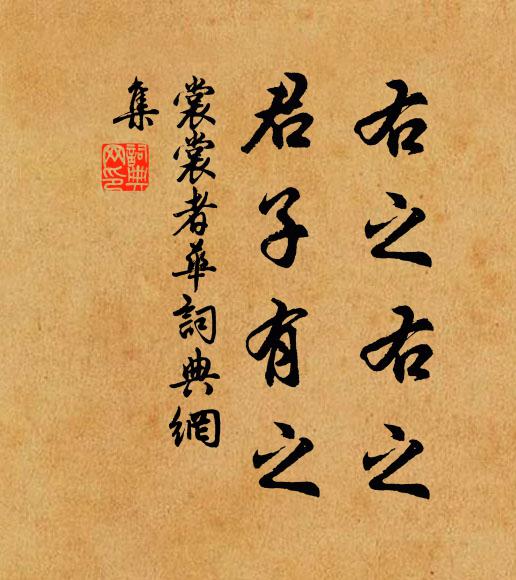 右之右之
君子有之
裳裳者華詞典網
集
詞典網印